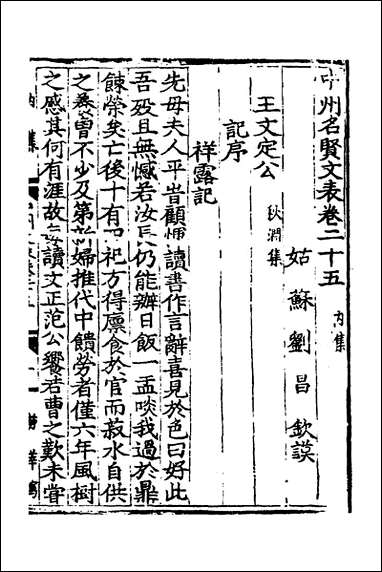 中州名賢文表卷二十五 内集
姑蘇劉昌欽謨
王文定公 秋澗集
記序
祥露記
先母夫人平昔顧惲讀書作言辭喜見於色曰好此
吾殁且無憾若汝長仍能辦日飯一盂啖我過於鼎
餗榮矣亡後十有 祀方得廪食於官而菽水自供
之養曽不少及第新婦推代中饋勞者僅六年風樹
之感其何有涯故每讀文正范公饗若曹之歎未嘗